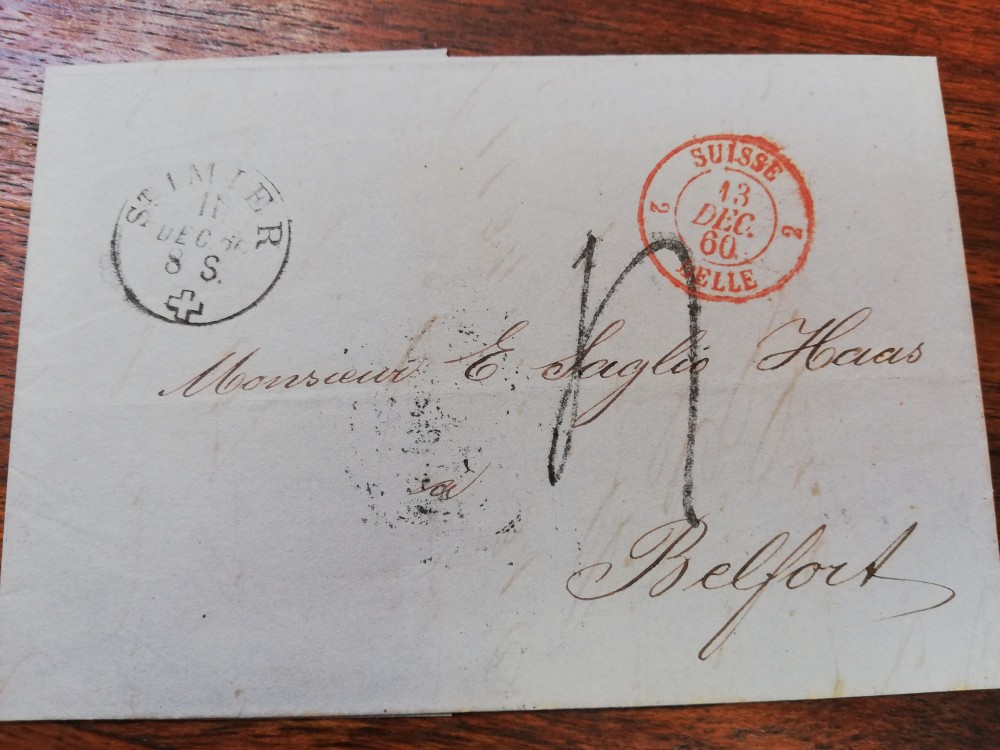 ST IMIER
11
DEC. 60
8 S.
SUISSE
2 13 2
DEC.
60.
DELLE
Monsieur E Saglio Haas
à
Belfort